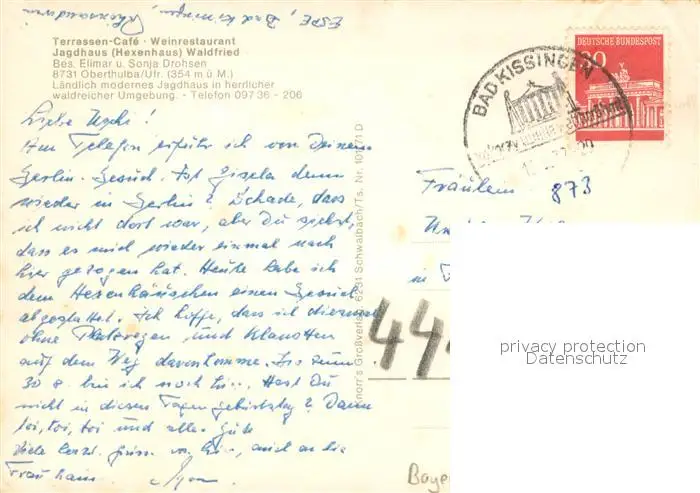 Terrassen-Café · Weinrestaurant
Jagdhaus (Hexenhaus) Waldfried
Bes. Elimar u. Sonja Drohsen
8731 Oberthulba/Ufr. (354 m ü M.)
Ländlich modernes Jagdhaus in herrlicher
waldreicher Umgebung. - Telefon 09736 - 206
Liebe Uschi!
Am Telefon erfuhr ich von Deinem
Berlin-Besuch. Ist Gisela denn
wieder in Berlin? Schade, dass
ich nicht dort war, aber Du siehst,
dass es mich wieder einmal nach
hier gezogen hat. Heute habe ich
dem Hexenhäuschen einen Besuch
abgestattet. Ich hoffe, dass ich diesmal
ohne Platzregen und
auf dem Weg davonkomme. Bis zum
30 8. bin ich noch hier. Hast Du
nicht in diesen Tagen Geburtstag? Dann
toi, toi, toi und alles Gute
Viele herzl. Grüsse von hier, auch an die
Frau
Knorr's Großverlag, 6231 Schwalbach/Ts. Nr. 101/71 D
BAD KISSINGEN
DEUTSCHE BUNDESPOST
Fräulein
873
in
44
Baye
privacy protection
Datenschutz